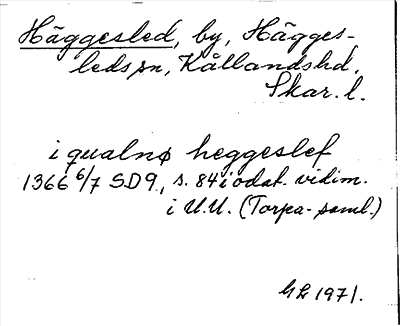 Häggesled, by, Hägges-
leds sn, Kållandshd,
Skar. l.
i qualnø heggeslef
1366 6/7 SD9, s. 84 i odat. vidim.
i U.U. (Torpa-saml.)
GL 1971.